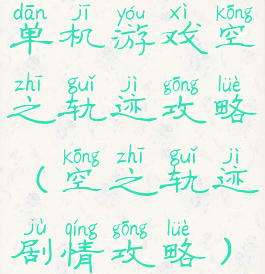 dān jī yóu xì kōng
单机游戏空
zhī guǐ jì gōng lüè
之轨迹攻略
kōng zhī guǐ jì
（空之轨迹
jù qíng gōng lüè
剧情攻略）